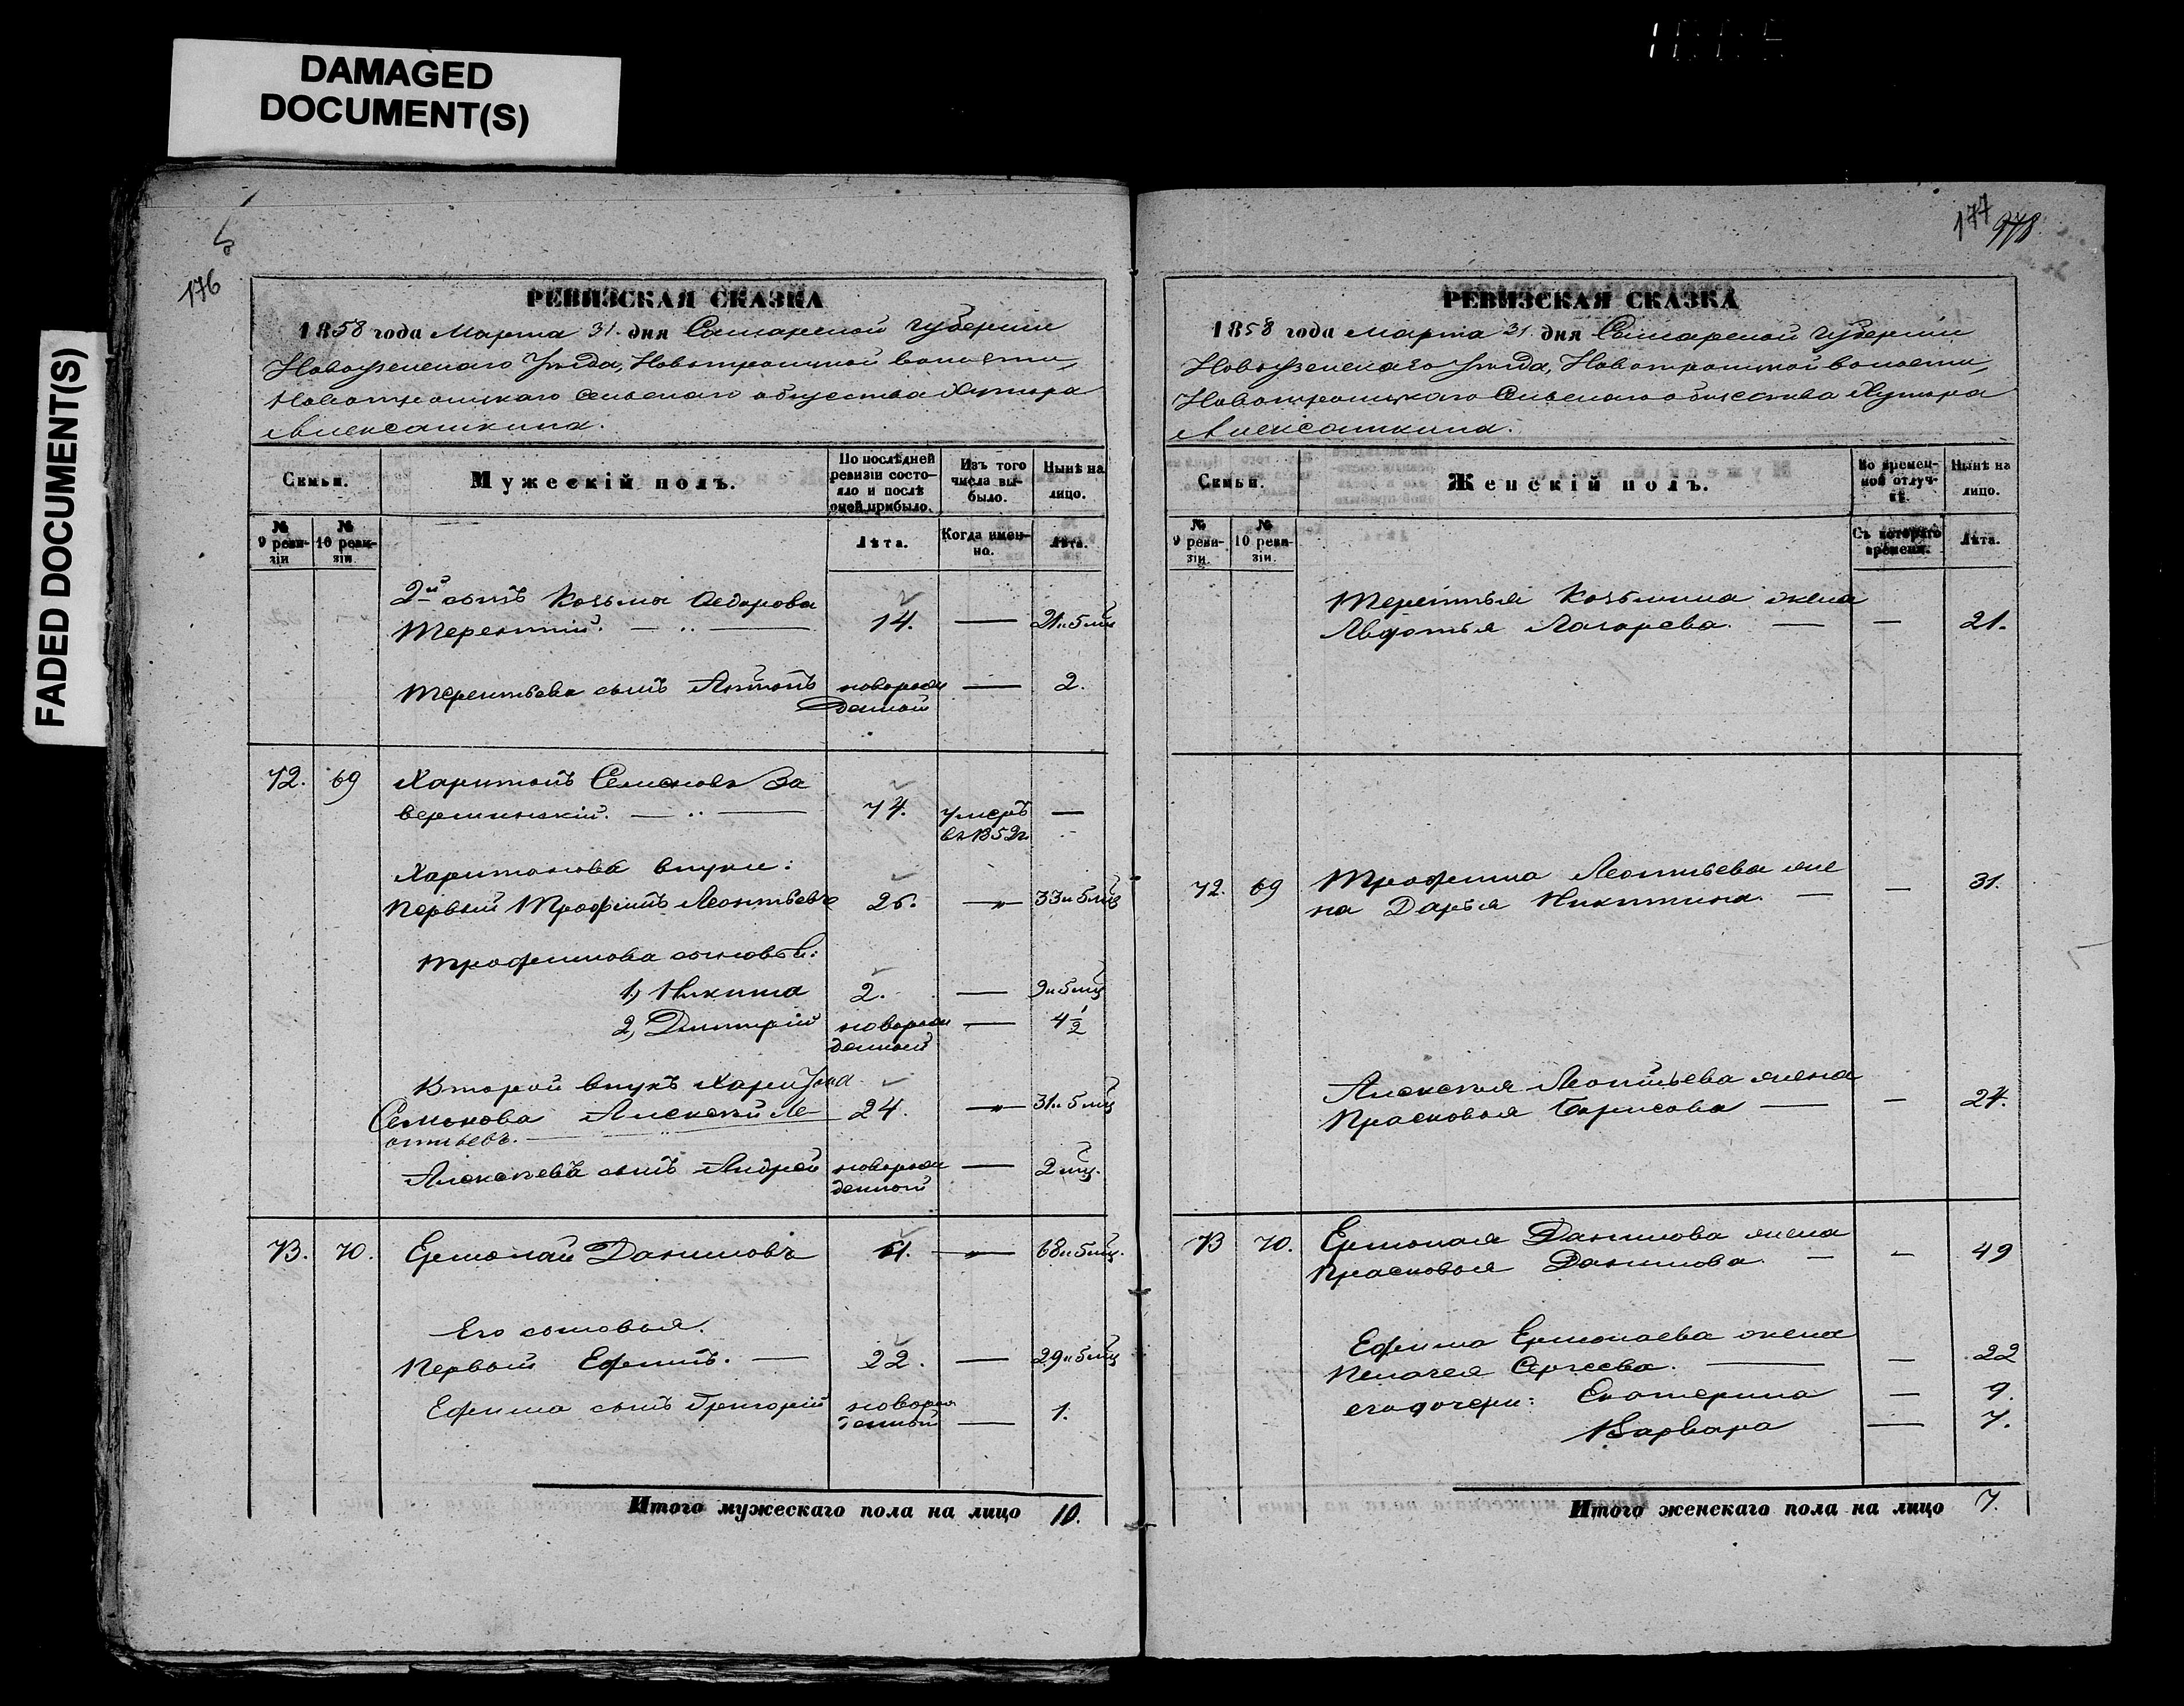 DAMAGED
DOCUMENT(S)
FADED DOCUMENT(S)
176
РЕВИЗСКАЯ СКАЗКА
1858 года Марта 31. дня Самарской губернии
Новоузенскаго Уѣзда, Новотроицкой волости,
Новотроицкаго сельскаго общества Хутора
Алексашкина.
Семьи.
Мужескій полъ.
По послѣдней
ревизіи состо-
яло и послѣ
оной прибыло.
Изъ того
числа вы-
было.
Нынѣ на
лицо.
№
9 реви-
зіи
№
10 реви-
зіи
Лѣта.
Когда имен-
но.
Лѣта.
2й сынъ Козьмы Федорова
Терентій. 14. — 21 и 5 мц
Терентьева сынъ Антонъ новорож — 2.
денной
72. 69 Харитонъ Семеновъ За
вершинскій. 74. умеръ —
въ 1852 г.
Харитонова внуки:
Первый Трофимъ Леонтьевъ 26. — 33 и 5 мц
Трофимова сыновья:
1, Никита 2. — 9 и 5 мц
2, Дмитрій новорож — 4 1/2
денной
Второй внукъ Харитона
Семенова Алексѣй Ле- 24. — 31 и 5 мц
онтьевъ.
Алексѣева сынъ Андрей новорож — 2 мц.
денной
73. 70. Ермолай Даниловъ 61. — 68 и 5 мц.
Его сыновья.
Первый Ефимъ. — 22. — 29 и 5 мц
Ефима сынъ Григорій новорож — 1.
денный
Итого мужескаго пола на лицо 10.
177 978
РЕВИЗСКАЯ СКАЗКА
1858 года Марта 31 дня Самарской губерніи
Новоузенскаго Уѣзда, Новотроицкой волости,
Новотроицкаго Сельскаго общества Хутора
Алексашкина.
Семьи.
Женскій полъ.
Во времен-
ной отлуч-
кѣ.
Нынѣ на
лицо.
№
9 реви-
зіи.
№
10 реви-
зіи.
Съ котораго
времени.
Лѣта.
Терентья Козьмина жена
Авдотья Лазарева. — — 21.
72. 69 Трофима Леонтьева же
на Дарья Никитина. — — 31.
Алексѣя Леонтьева жена
Прасковья Борисова — — 24.
73 70. Ермолая Данилова жена
Прасковья Данилова. — — 49
Ефима Ермолаева жена
Пелагея Сергеева. — — 22
его дочери: Екатерина — 9.
Варвара — 7.
Итого женскаго пола на лицо 7.